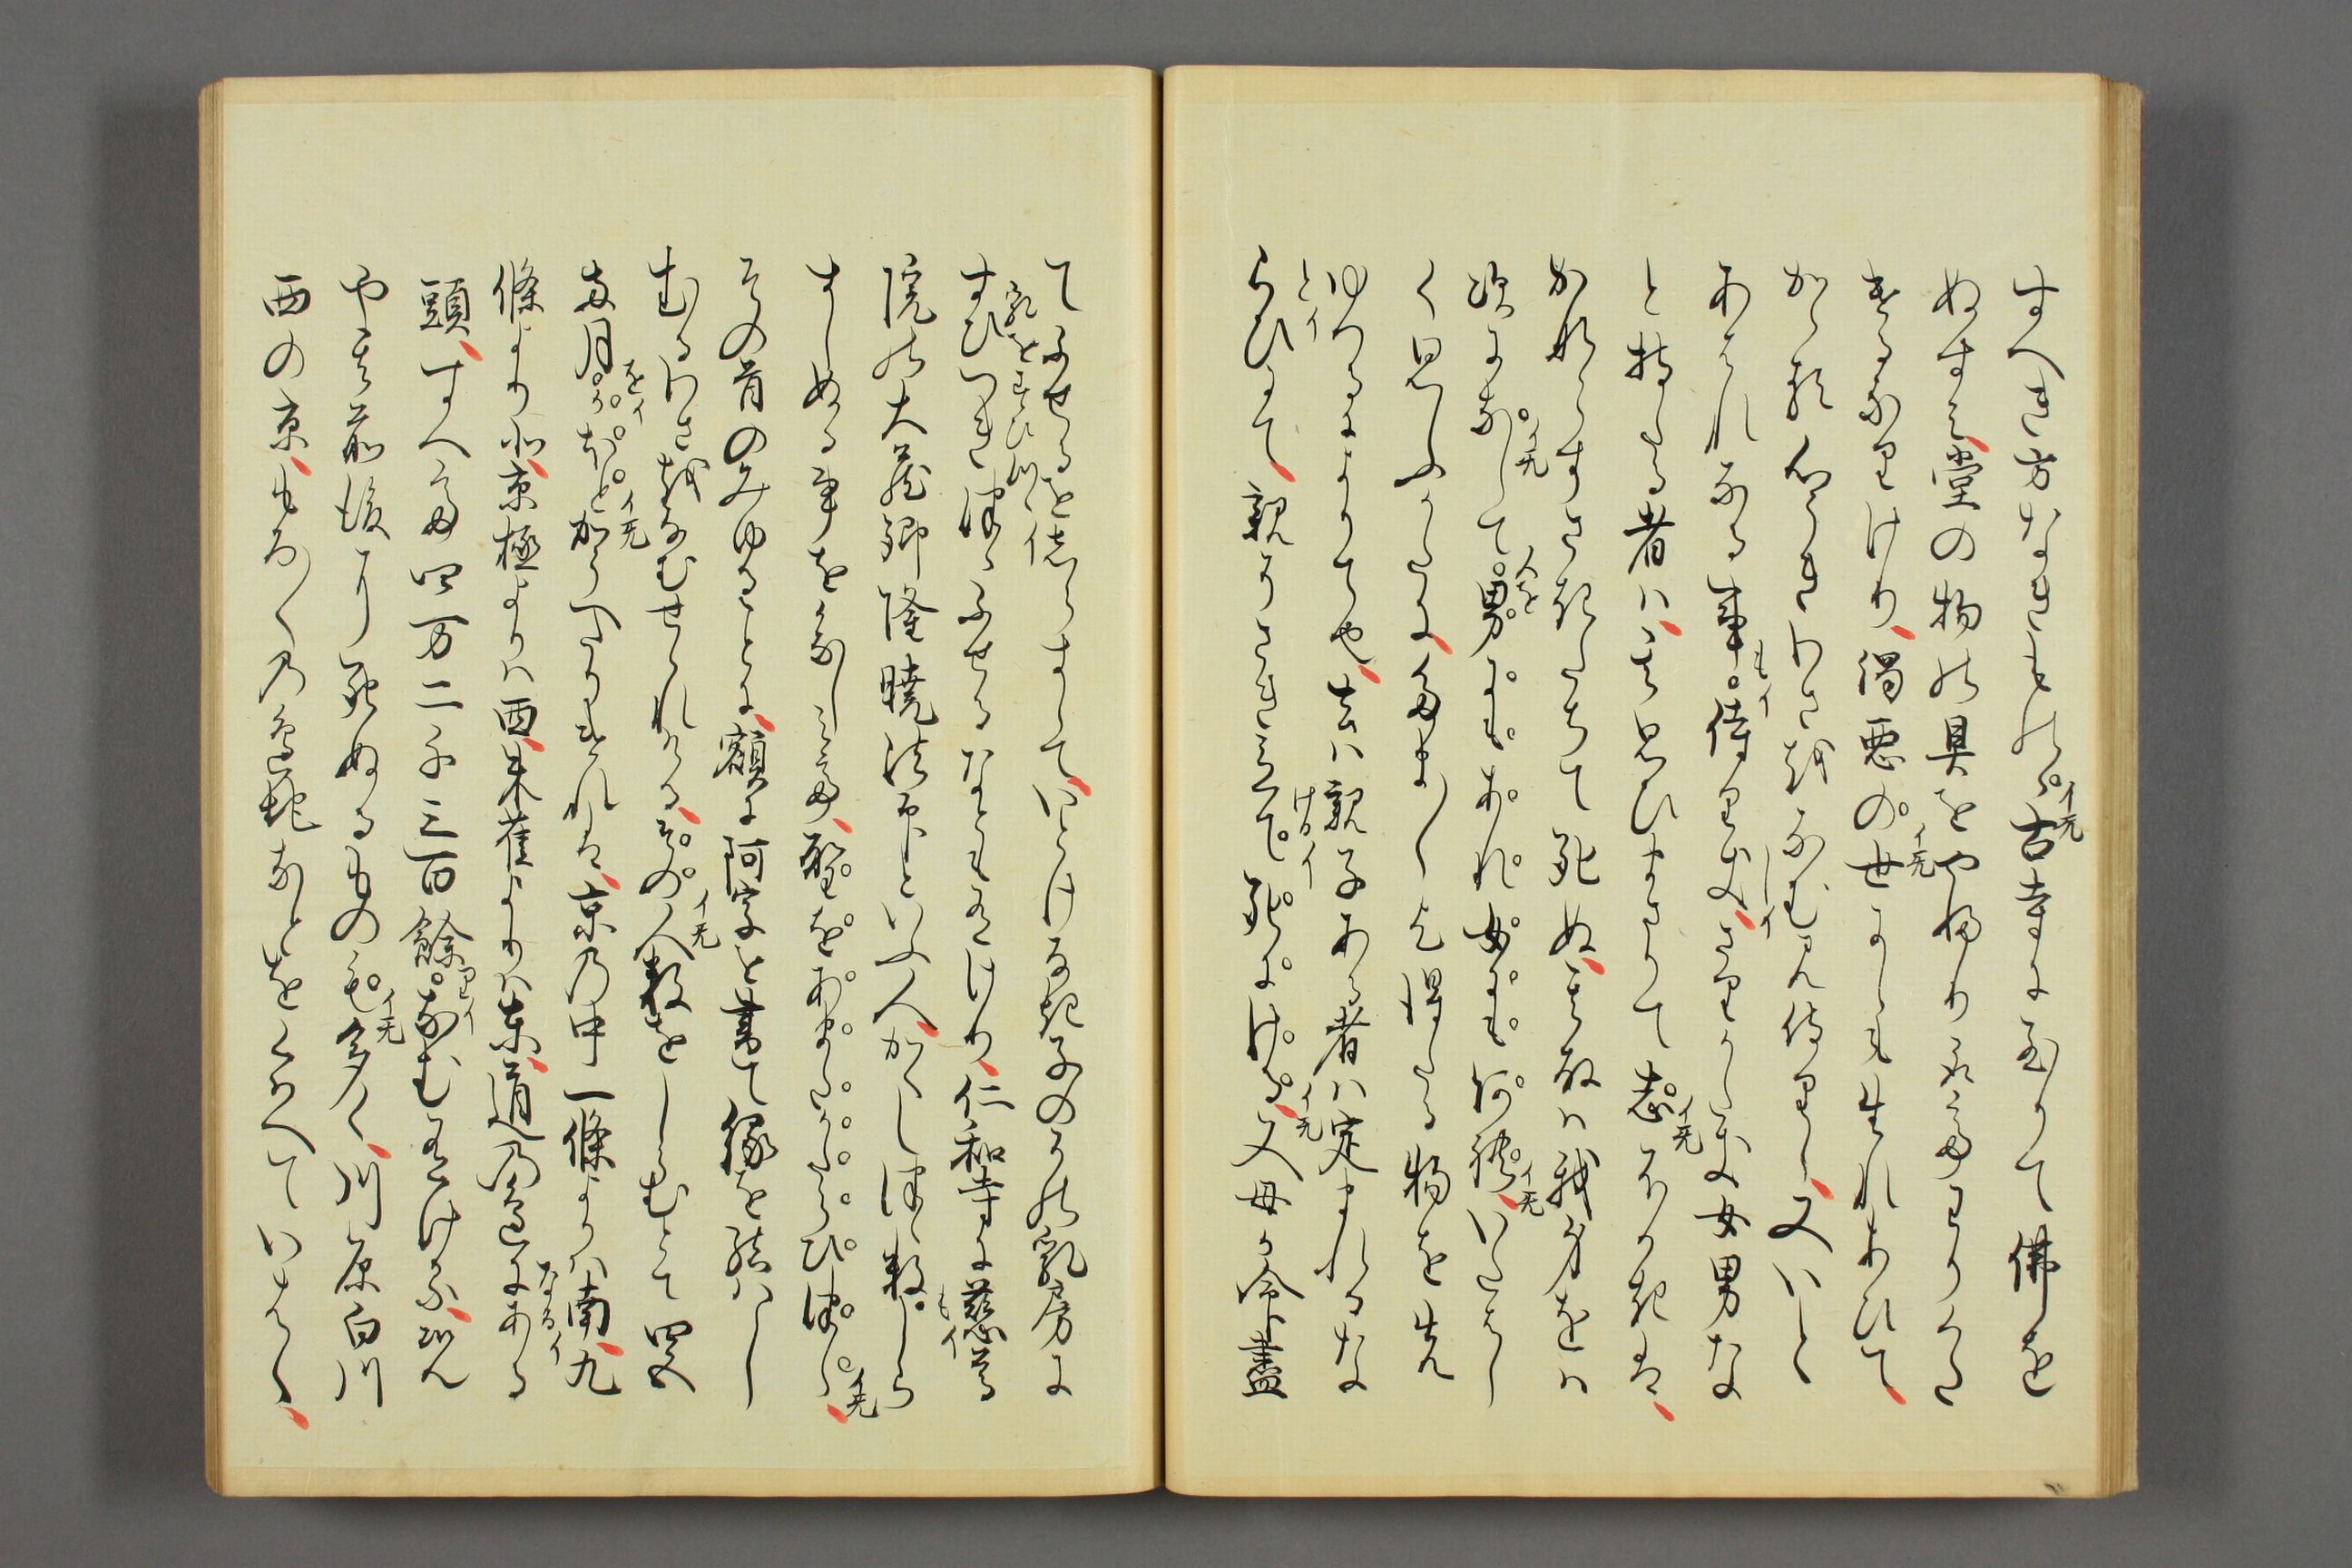 すへき方なきものゝ古寺に至りて佛を
イ无
ぬすみ堂の物の具をやふり取てわりくた
ける也けり濁悪の世にしも生れあひて
イ无
かゝる心うきわさをなむ見侍りし又いと
あはれなる事侍りきさりかたき女男な
もイ
しイ
と持たる者ハ其思ひまさりて志ふかきは
イ无
かならすさきたちて死ぬ其故ハ我身をハ
次になして男にもあれ女にもいたはし
イ无
人を
イ无
く思ふかたにたま〱乞得たる物を先
ゆつるによりて也去ハ親子ある者ハ定まれるな
とイ
けるイ
らひにて親そさきたちて死にける又母か命盡
イ无
てふせるをしらすしていとけなき子のその乳房に
乳をすひつゝイ
すひつきつゝふせるなともありけり仁和寺に慈尊
院の大蔵卿隆暁法印といふ人かくしつゝ数しら
もイ
すしぬる事をかなしみて聖をあまたかたらひつゝ
イ无
その首のみゆることに額に阿字を書て縁を結ハし
むるわさをなむせられける其の人数をしらむとて四五
イ无
両月かほとかそへたりけれは京乃中一條よりハ南九
をイ
イ无
條より北京極よりハ西朱雀よりハ東道乃邊にある
なるイ
頭すへて四万二千三百餘なむありける况ん
りイ
や其前後に死ぬるもの多く川原白川
イ无
西の京もろ〱乃邊地なとをくはへていはゝ